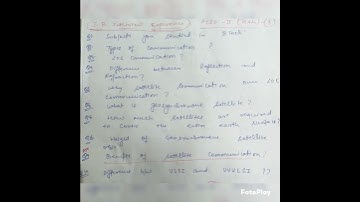 Subjects you studied in B.Tech
Types of Communication ?
LOS Communication ?
Difference between Reflection and
Refraction ?
Why satellite communication over LOS
Communication ?
What is Geosynchronous satellite ?
How much satellites are required
to cover the entire earth surface ?
Height of Geosynchronous satellite
Benefits of satellite Communication ?
Difference b/w VLSI and
FotoPlay